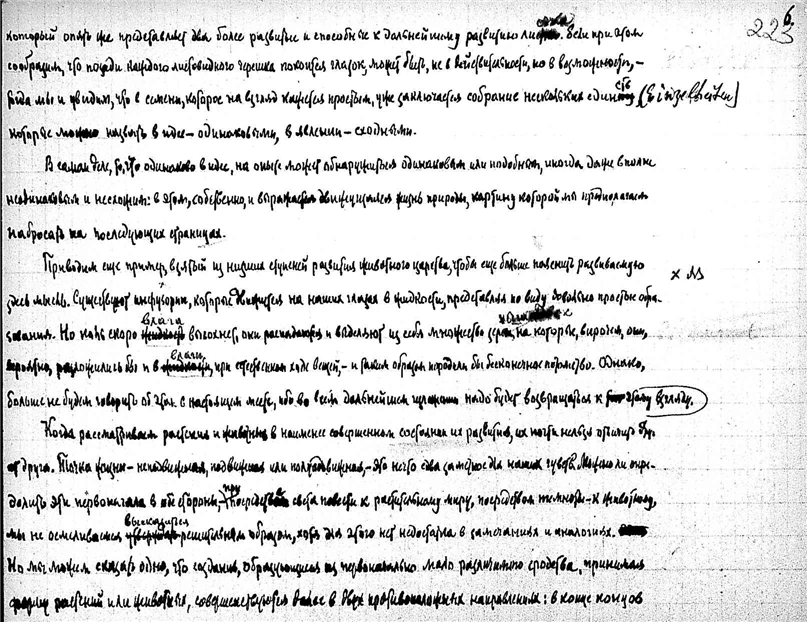 6.
223
который опять же представляет два более развитые и способные к дальнейшему развитию листка. Если при этом
сообразим, что позади каждого листовидного черешка покоится глазок, может быть, не в действительности, но в возможности, –
тогда мы и увидим, что в семени, которое на взгляд кажется простым, уже заключается собрание нескольких единств (Einzelheiten)
которые можно назвать в идее – одинаковыми, в явлении – сходными.
В самом деле, то, что одинаково в идее, на опыте может обнаружиться одинаковым или подобным, иногда даже вполне
неодинаковым и несхожим: в этом, собственно, и выражается движущаяся жизнь природы, картину которой мы предполагаем
набросать на последующих страницах.
Приводим еще пример, взятый из низших ступеней развития животного царства, чтобы еще больше пояснить развиваемую
здесь мысль. Существуют инфузории, которые движутся на наших глазах в жидкости, представляя по виду довольно простые обра-
зования. Но коль скоро влага высохнет, они распадаются и выделяют из себя множество зерен, на которые, впрочем, они,
вероятно, разложились бы и в влаге, при естественном ходе вещей, – и таким образом породили бы бесконечное потомство. Однако,
больше не будем говорить об этом в настоящем месте, ибо во всем дальнейшем надо будет возвращаться к этому взгляду.
Когда рассматриваем растения и животных в наименее совершенном состоянии их развития, их почти нельзя отличить друг
от друга. Точка жизни – неподвижная, подвижная или полуподвижная, – это нечто едва заметное для наших чувств. Можно ли опре-
делить эти первоначала в обе стороны, – при посредстве света повести к растительному миру, посредством темноты – к животному,
мы не осмеливаемся высказаться решительным образом, хотя для этого нет недостатка в замечаниях и аналогиях.
Но мы можем сказать одно, что создания, образующиеся из первоначально мало различимого сродства, принимая
форму растений или животных, совершенствуются далее в двух противоположных направлениях: в конце концов